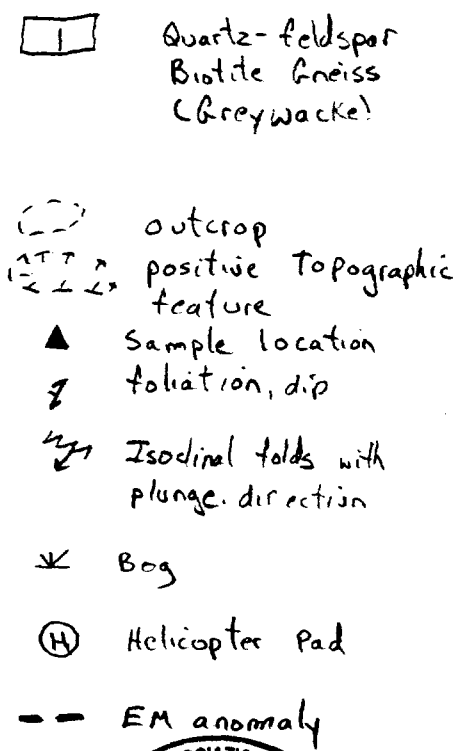 1 Quartz-feldspar
Biotite Gneiss
(Greywacke)
outcrop
positive Topographic
feature
Sample location
foliation, dip
Isoclinal folds with
plunge direction
Bog
H Helicopter Pad
EM anomaly